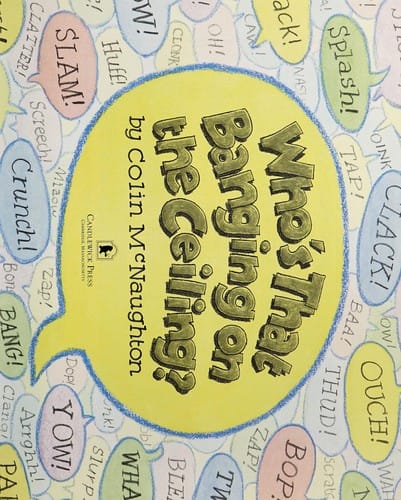 OINK
CLACK!
OUCH!
Splash!
TAP!
BAA!
THUD!
ack!
Bop!
ZAP!
Who's That
Banging on
the Ceiling?
by Colin McNaughton
CANDLEWICK PRESS
CAMBRIDGE, MASSACHUSETTS
OH!
TW
BLE
OW!
WHA
Huff!
Slurp
SLAM!
Pop!
YOW!
CLATTER!
Screech!
Miaow
Zap!
Arrghh!
Crunch!
BANG!
Clang
PA